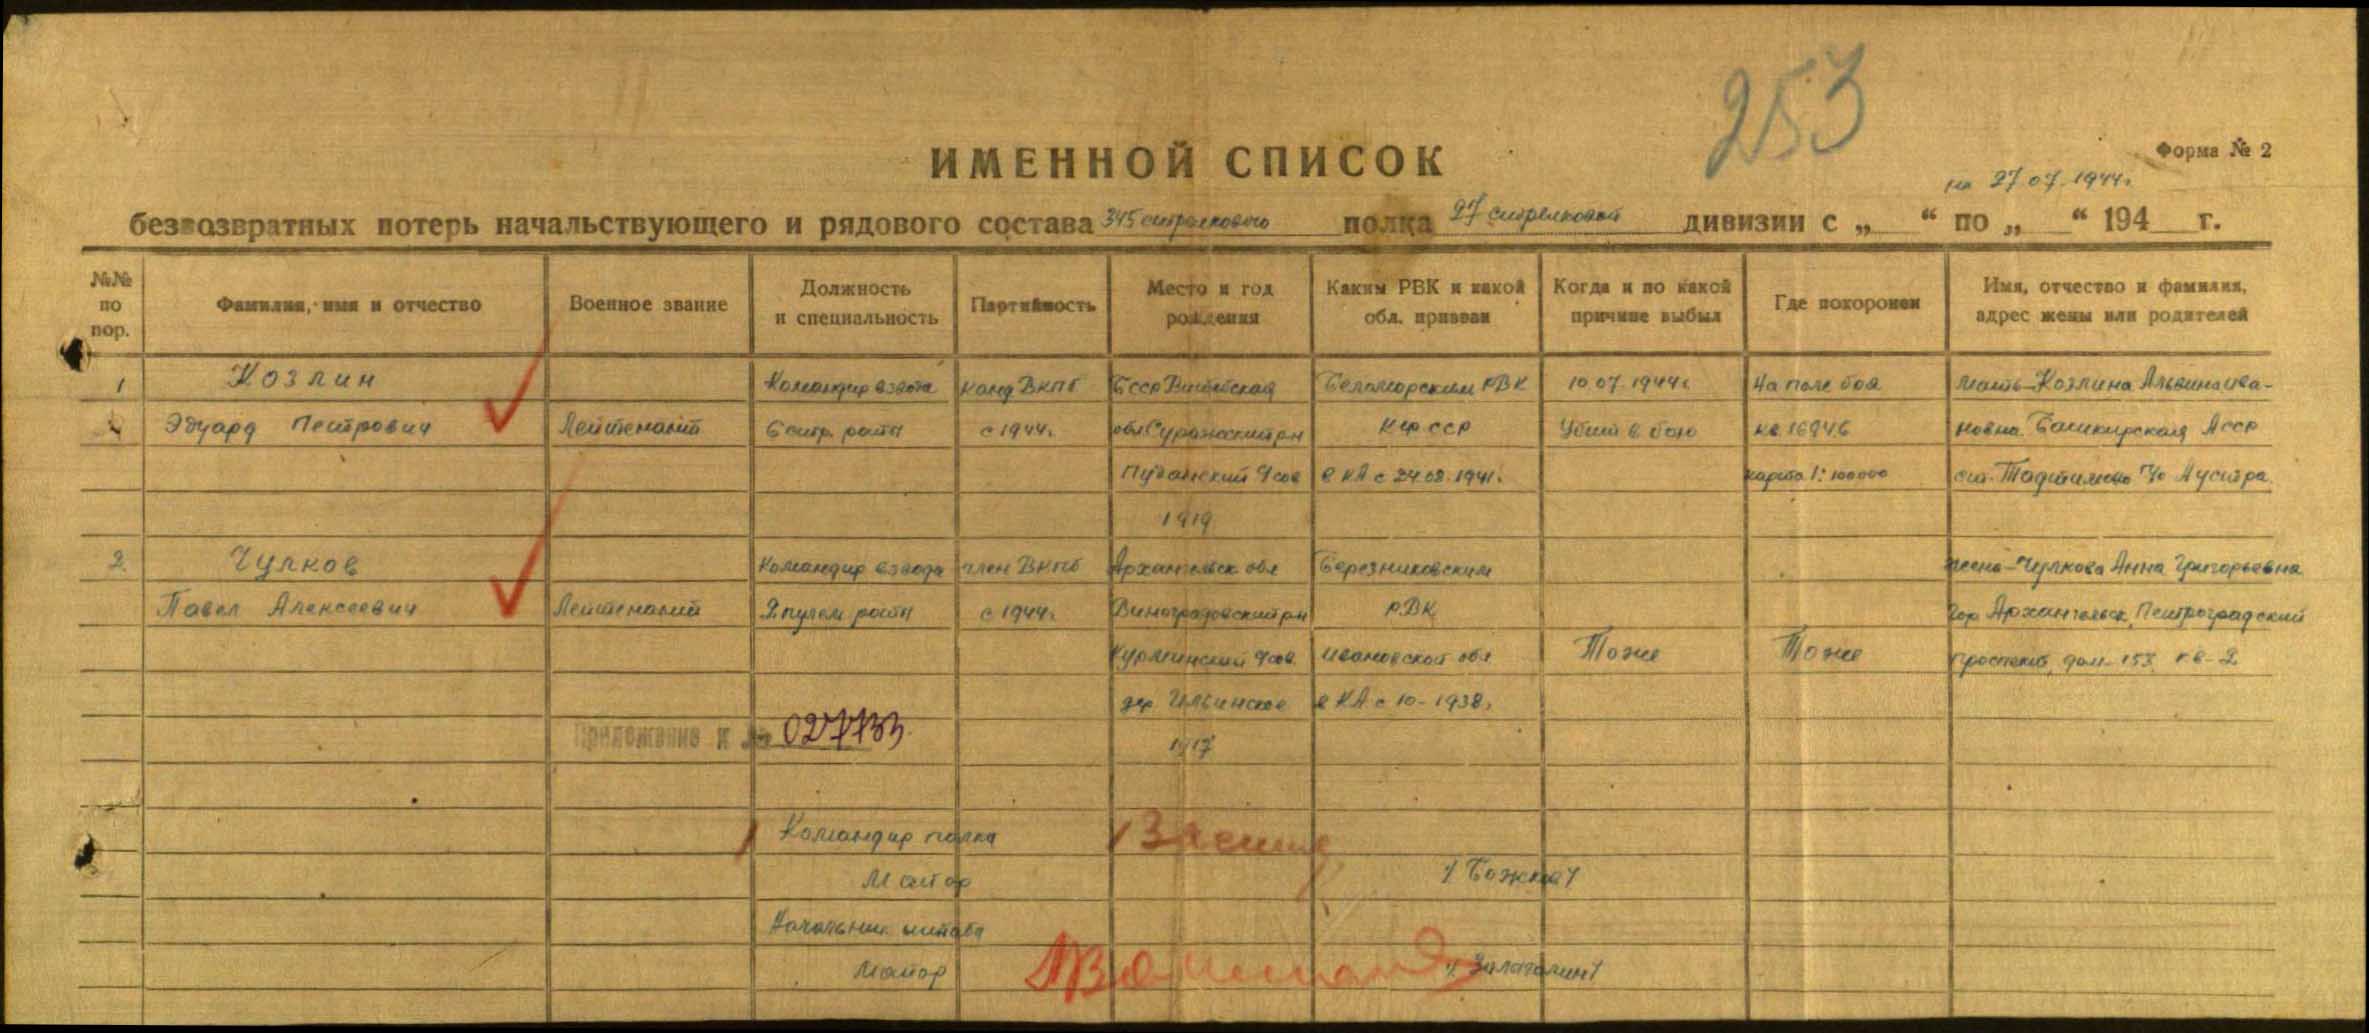 253
ИМЕННОЙ СПИСОК
Форма № 2
на 27.07.1944г.
безвозвратных потерь начальствующего и рядового состава 345 стрелкового полка 27 стрелковой дивизии с „ “ по „ “ 194 г.
№№ по пор. Фамилия, имя и отчество Военное звание Должность и специальность Партийность Место и год рождения Каким РВК и какой обл. призван Когда и по какой причине выбыл Где похоронен Имя, отчество и фамилия, адрес жены или родителей
1 Козлин Командир взвода канд ВКПб Бсср Витебская Беломорским РВК 10.07.1944г. На поле боя мать-Козлина Альвина Ива-
Эдуард Петрович Лейтенант 6 стр. роты с 1944г. обл Суражский р-н Кф ССР Убит в бою кв. 1694б новна. Башкирская Асср
Пудатский с/сов в КА с 24.08.1941г. карта 1:100000 ст. Тавтиманово П/о Аустра.
1919
2. Чулков Командир взвода член ВКПб Архангельск обл Березниковским жена-Чулкова Анна Григорьевна
Павел Алексеевич Лейтенант 2 пулем роты с 1944г. Виноградовский р-н РВК гор Архангельск, Петроградский
с/сов Ивановской обл Тоже Тоже проспект, дом-153 кв-2
дер Ильинское в КА с 10-1938г.
Приложение к № 027733
1917
Командир полка
Майор /Божко/
Начальник штаба
Майор